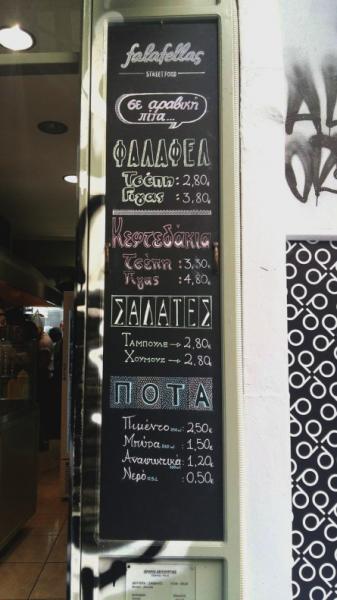 falafellas
STREET FOOD
σε αραβική
πιτα...
ΦΑΛΑΦΕΛ
Τσέπη: 2,80€
Γίγας: 3,80€
Κεφτεδάκια
Τσέπη: 3,30€
Γίγας: 4,80€
ΣΑΛΑΤΕΣ
ΤΑΜΠΟΥΛΕ → 2,80€
ΧΟΥΜΟΥΣ → 2,80€
ΠΟΤΑ
Πιμέντο: 2,50€
Μπύρα: 1,50€
Αναψυκτικά: 1,20€
Νερό: 0,50€
ΩΡΑΡΙΟ ΛΕΙΤΟΥΡΓΙΑΣ